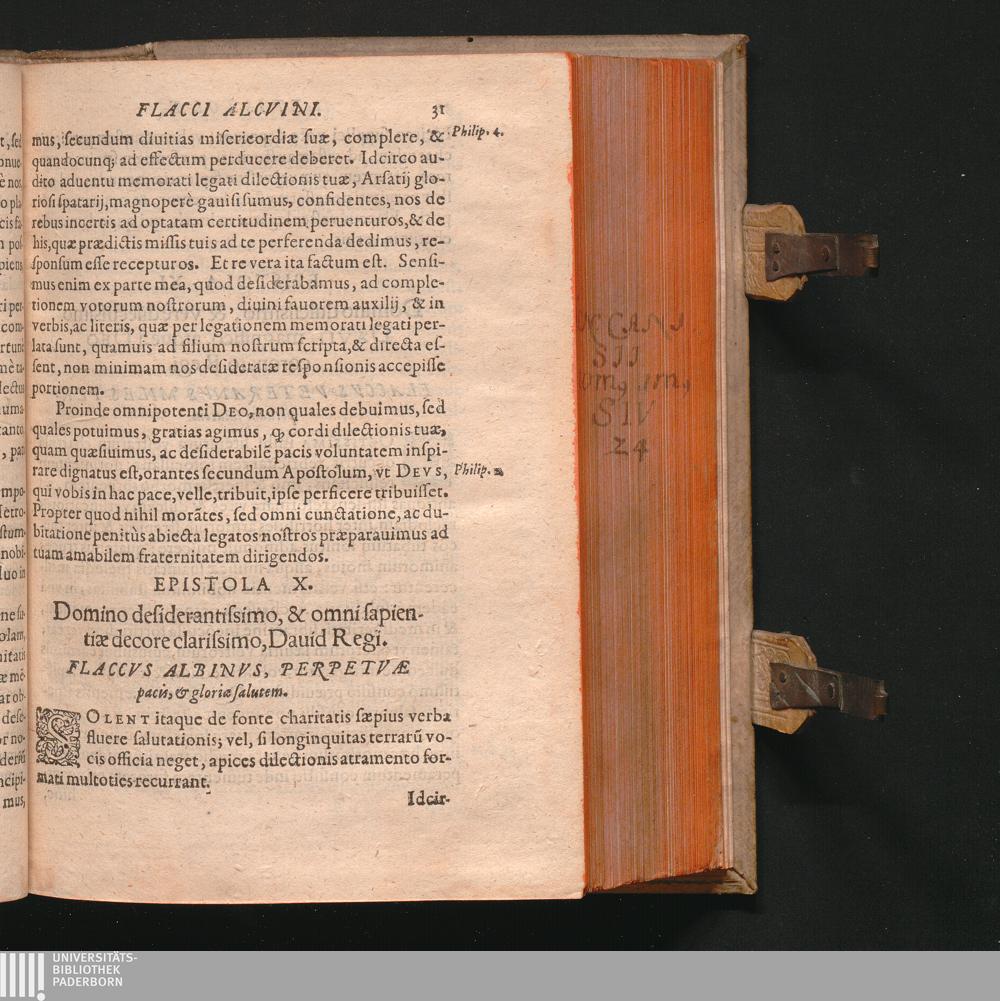 FLACCI ALCVINI. 31
mus, secundum diuitias misericordiæ suæ, complere, & Philip. 4.
quandocunq; ad effectum perducere deberet. Idcirco au-
dito aduentu memorati legati dilectionis tuæ, Arsatij glo-
riosi spatarij, magnoperè gauisi sumus, confidentes, nos de
rebus incertis ad optatam certitudinem peruenturos, & de
his, quæ prædictis missis tuis ad te perferenda dedimus, re-
sponsum esse recepturos. Et re vera ita factum est. Sensi-
mus enim ex parte mea, quod desiderabamus, ad comple-
tionem votorum nostrorum, diuini fauorem auxilij, & in
verbis, ac literis, quæ per legationem memorati legati per-
lata sunt, quamuis ad filium nostrum scripta, & directa es-
sent, non minimam nos desideratæ responsionis accepisse
portionem.
Proinde omnipotenti DEO, non quales debuimus, sed
quales potuimus, gratias agimus, ꝙ cordi dilectionis tuæ,
quam quæsiuimus, ac desiderabilē pacis voluntatem inspi-
rare dignatus est, orantes secundum Apostolum, vt DEVS, Philip. 2
qui vobis in hac pace, velle, tribuit, ipse perficere tribuisset.
Propter quod nihil morātes, sed omni cunctatione, ac du-
bitatione penitùs abiecta legatos nostros præparauimus ad
tuam amabilem fraternitatem dirigendos.
EPISTOLA X.
Domino desiderantissimo, & omni sapien-
tiæ decore clarissimo, Dauid Regi.
FLACCVS ALBINVS, PERPETVÆ
pacis, & gloriæ salutem.
SOLENT itaque de fonte charitatis sæpius verba
fluere salutationis; vel, si longinquitas terrarū vo-
cis officia neget, apices dilectionis atramento for-
mati multoties recurrant.
Idcir-
SII
SIV
24
UNIVERSITÄTS-
BIBLIOTHEK
PADERBORN